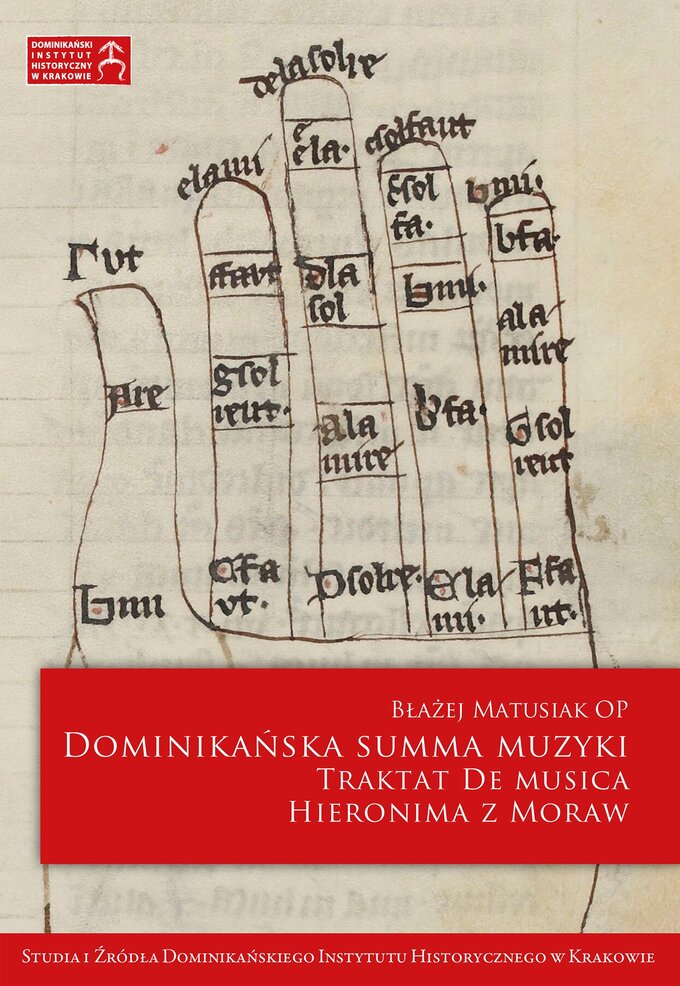 DOMINIKAŃSKI
INSTYTUT
HISTORYCZNY
W KRAKOWIE
delasolre
e
ela·
csolfaut
elami
csol
fa·
bmi·
bfa·
Γ ut
ffaut
dla
sol
bmi·
ala
mire
Are
gsol
reut·
ala
mire
bfa·
Gsol
reut
bmi
Cfa
ut·
Dsolre·
Ela
mi·
Ffa
ut·
BŁAŻEJ MATUSIAK OP
DOMINIKAŃSKA SUMMA MUZYKI
TRAKTAT DE MUSICA
HIERONIMA Z MORAW
STUDIA I ŹRÓDŁA DOMINIKAŃSKIEGO INSTYTUTU HISTORYCZNEGO W KRAKOWIE